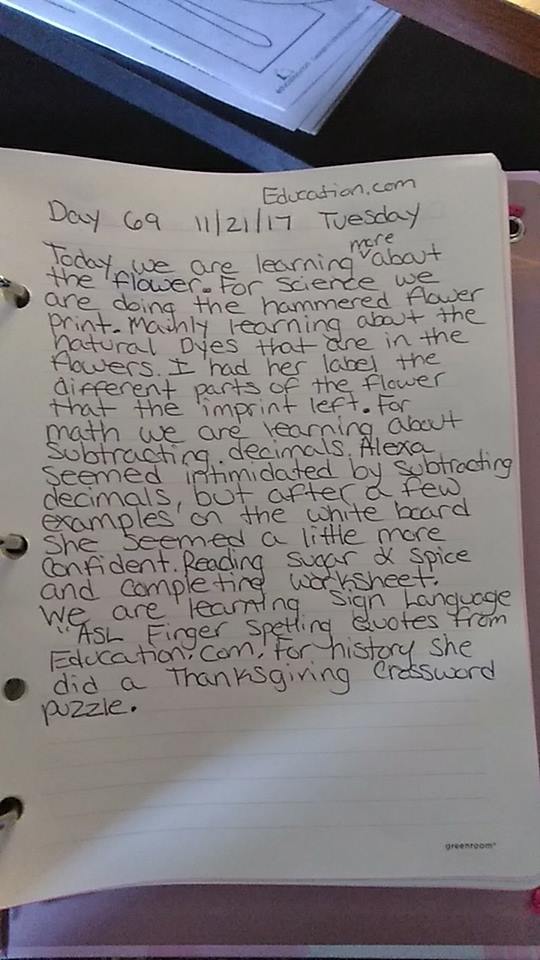 Education.com
Day 69 11/21/17 Tuesday
Today we are learning more about
the flower. For Science we
are doing the hammered flower
print. Mainly learning about the
natural Dyes that are in the
flowers. I had her label the
different parts of the flower
that the imprint left. For
math we are learning about
Subtracting decimals. Alexa
seemed intimidated by subtracting
decimals, but after a few
examples on the white board
She seemed a little more
Confident. Reading Sugar & Spice
and completing worksheet.
We are learning Sign Language
"ASL Finger Spelling Quotes from
Education.com. For history she
did a Thanksgiving Crossword
puzzle.
greenroom